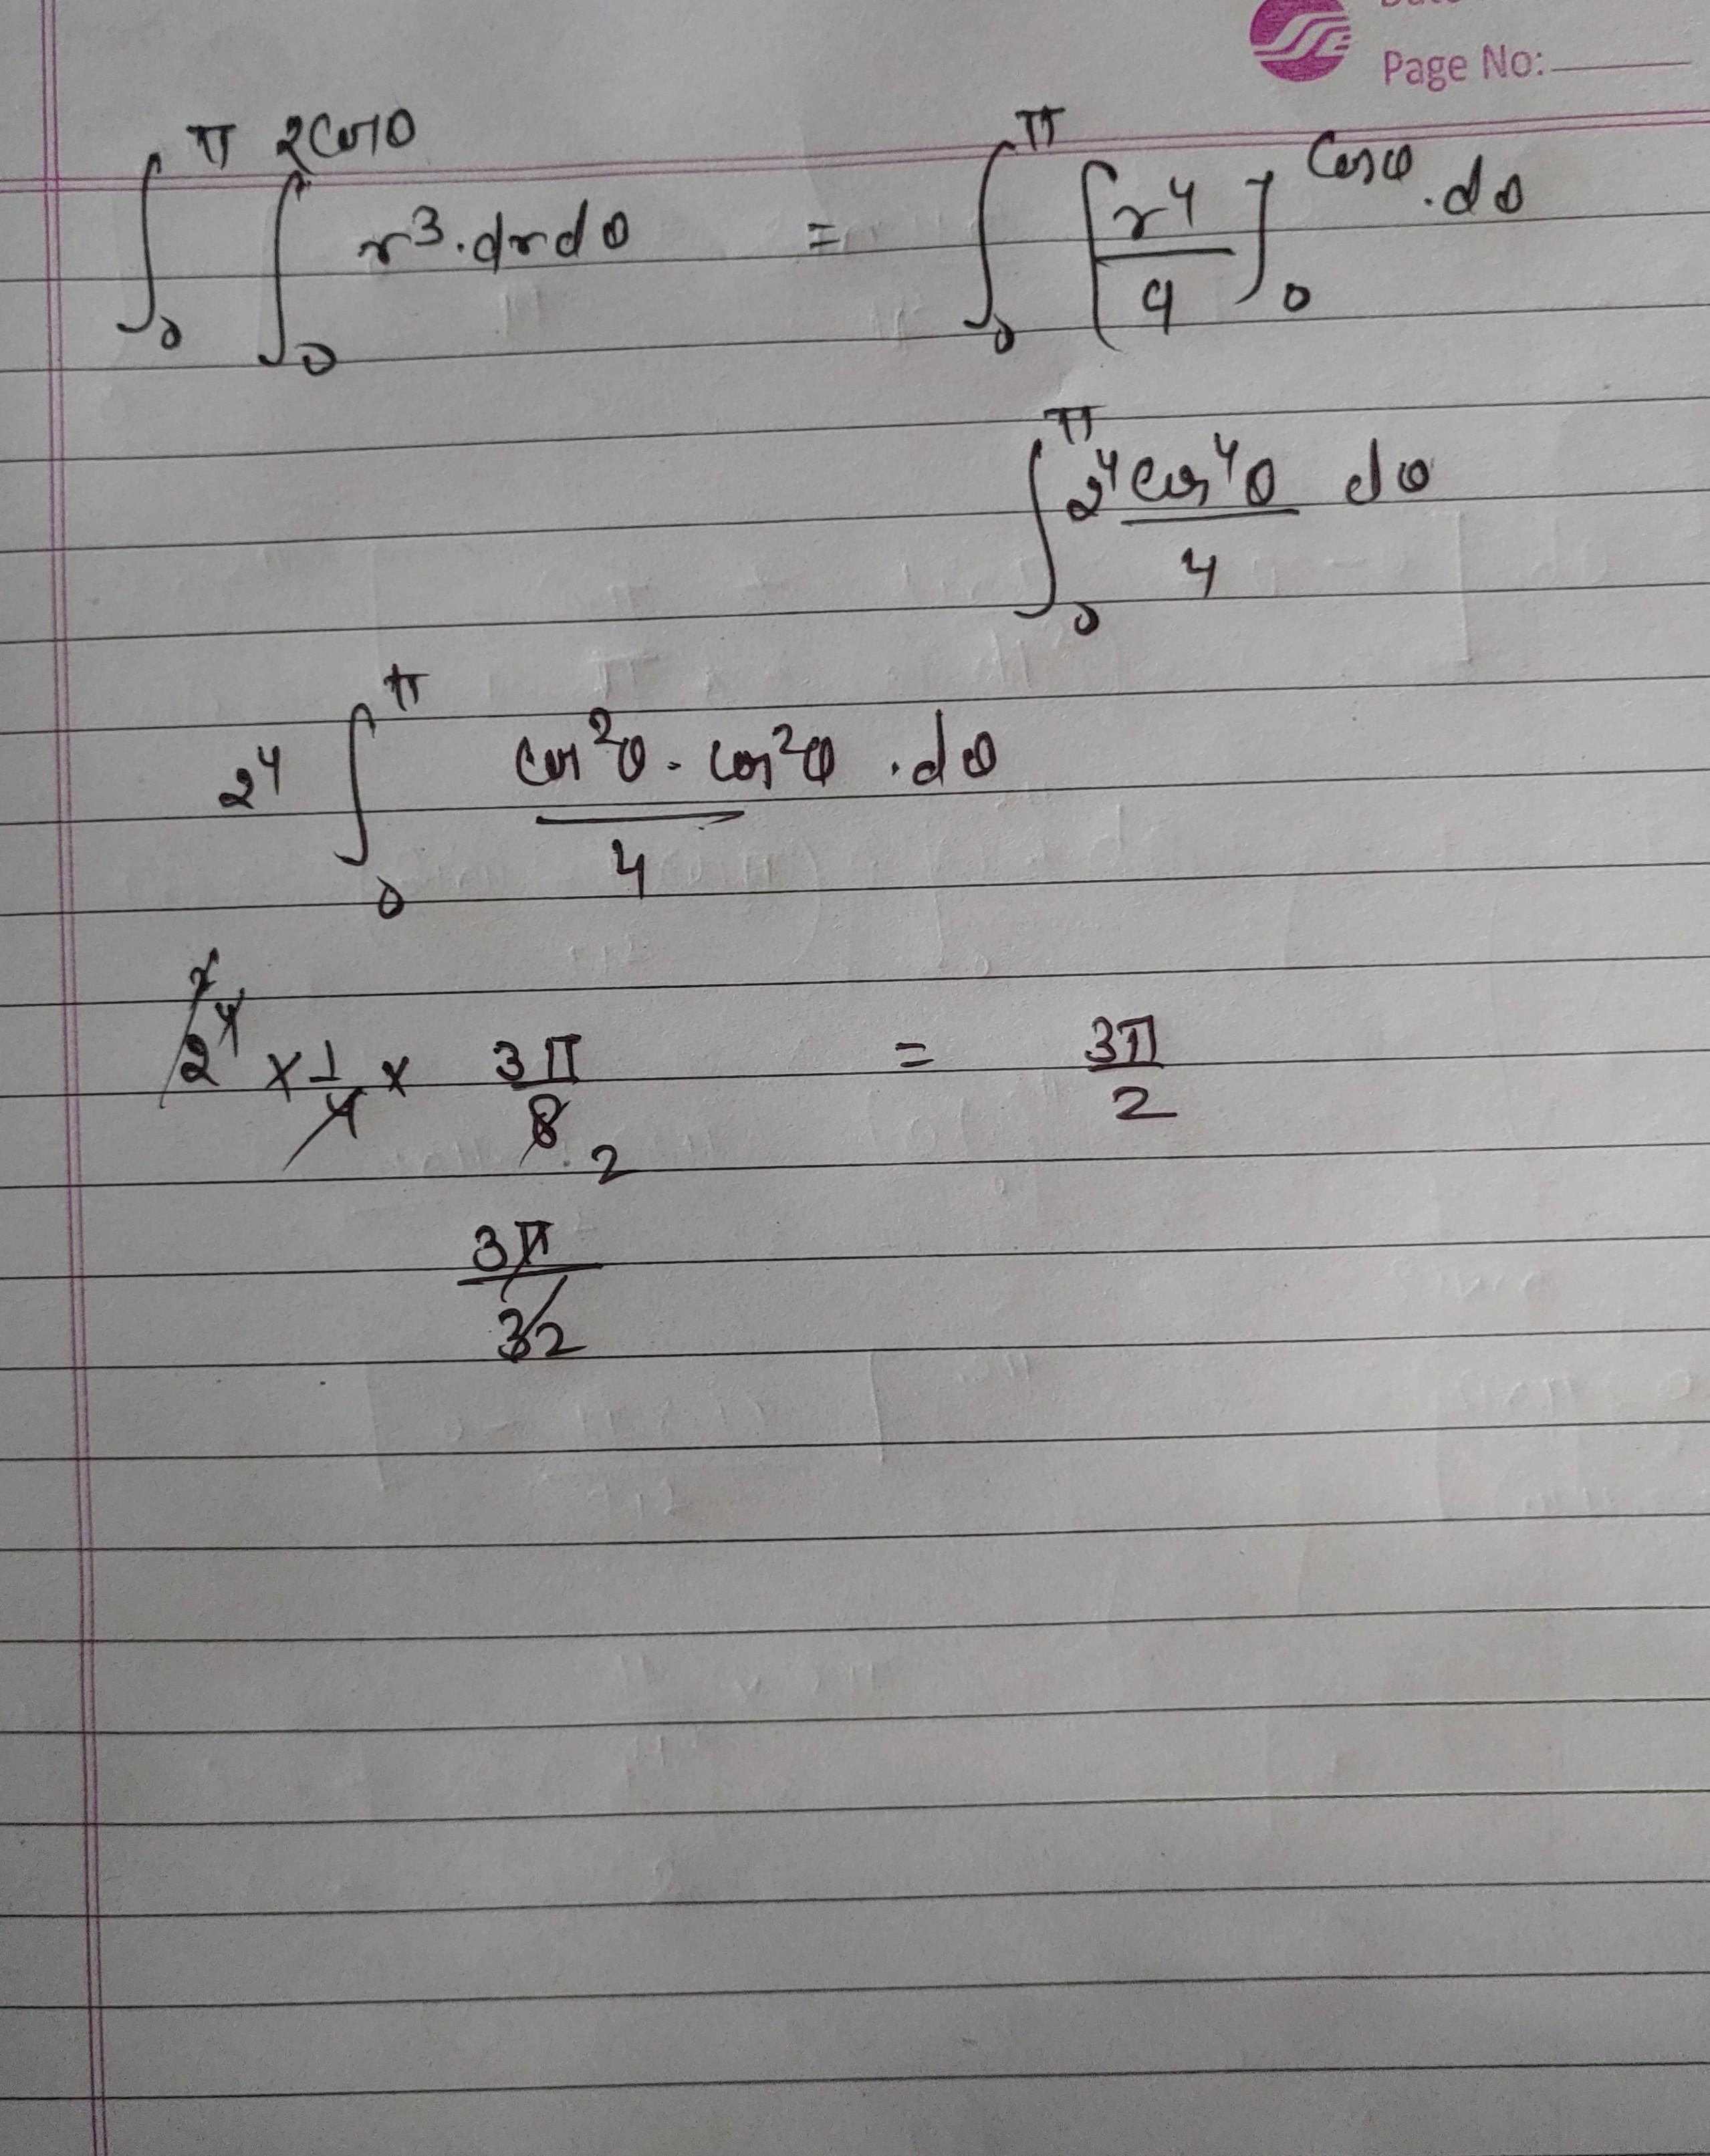 Page No:
∫₀^π ∫₀^2cosθ r³.drdθ = ∫₀^π [r⁴/4]₀^cosθ .dθ
∫₀^π 2⁴cos⁴θ/4 dθ
2⁴ ∫₀^π cos²θ . cos²θ/4 .dθ
2⁴ × 1/4 × 3π/8 2 = 3π/2
3π/32